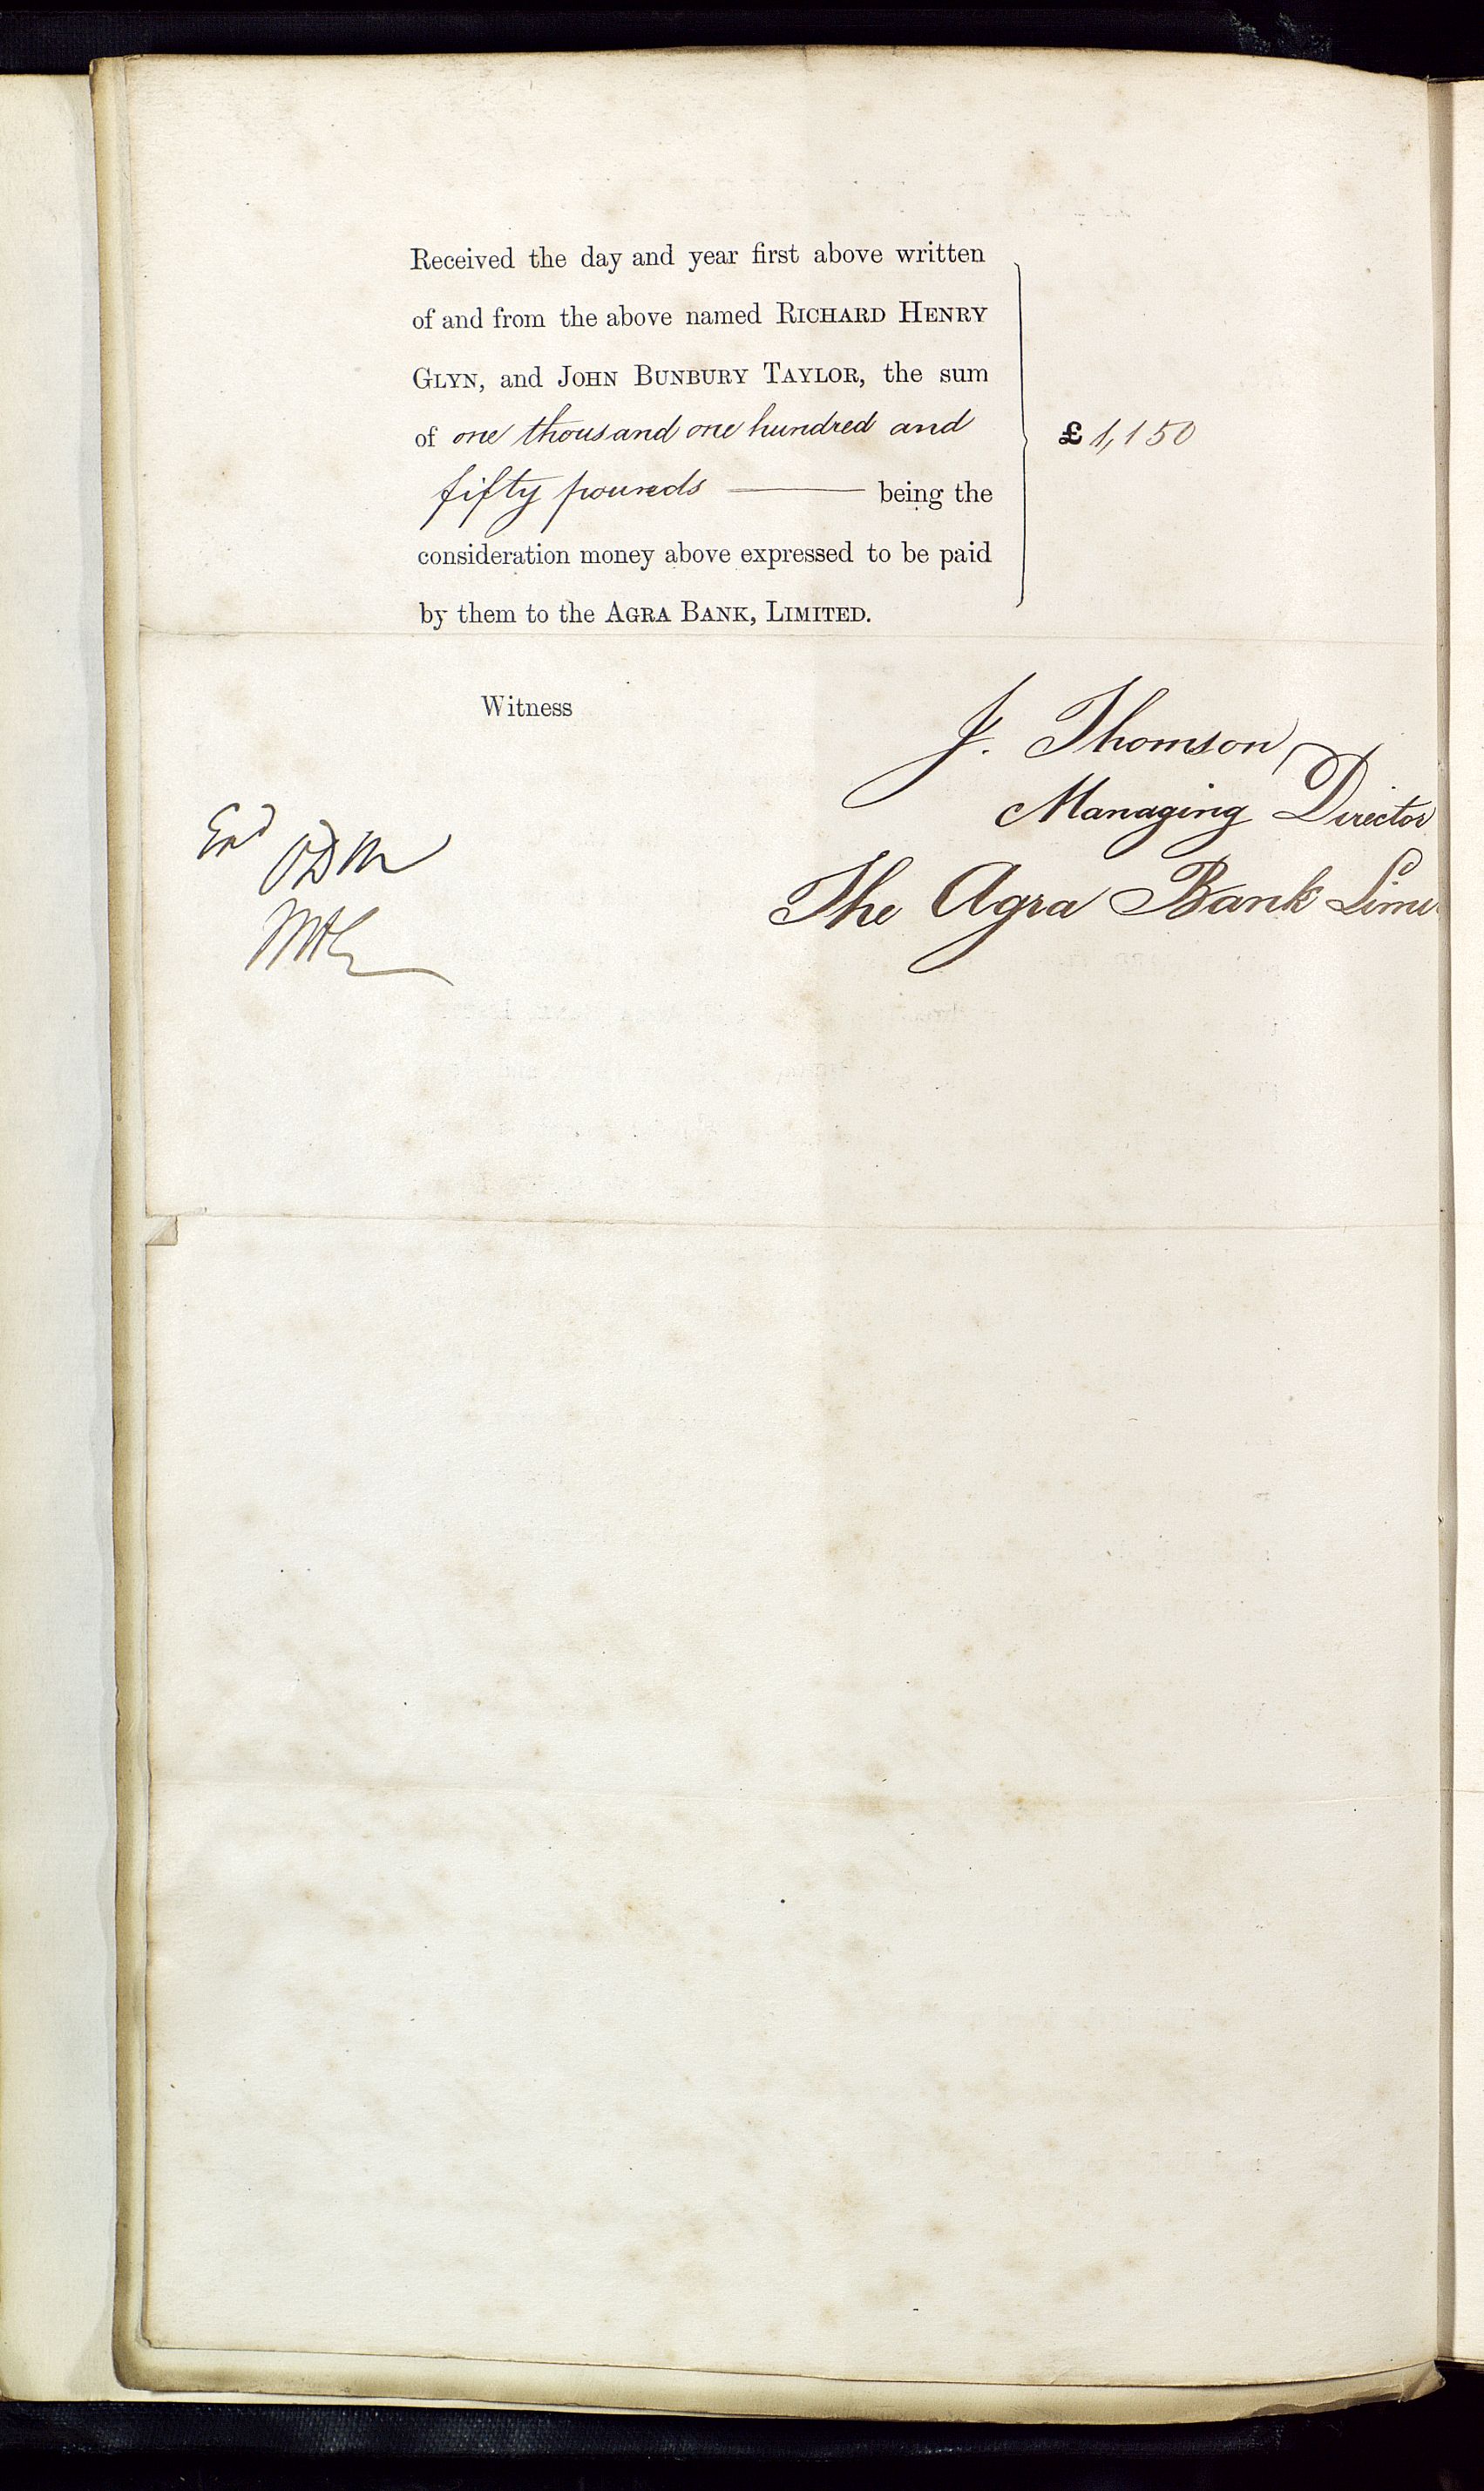 Received the day and year first above written
of and from the above named RICHARD HENRY
GLYN, and JOHN BUNBURY TAYLOR, the sum
of one thousand one hundred and
£ 1,150
fifty pounds ——— being the
consideration money above expressed to be paid
by them to the AGRA BANK, LIMITED.
Witness
J. Thomson
Managing Director
The Agra Bank Limi
Exd